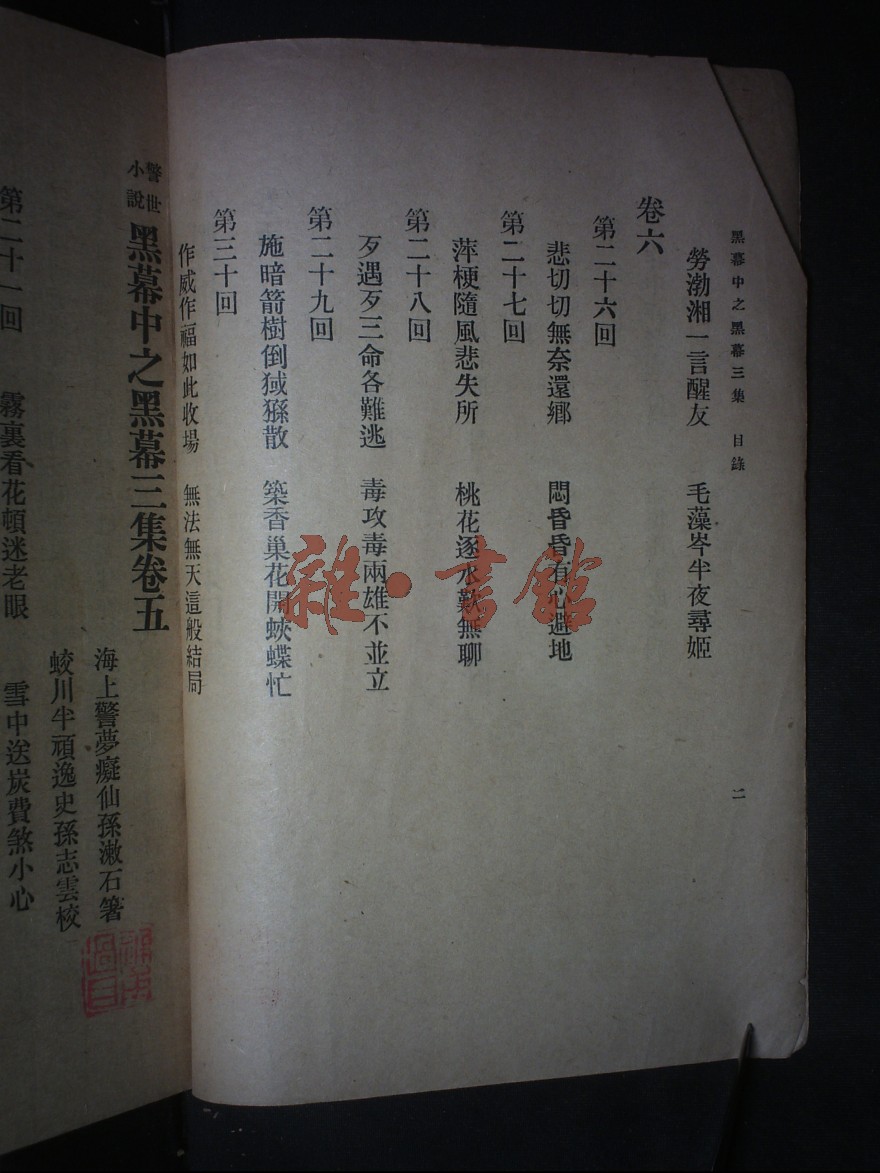 黑幕中之黑幕三集 目錄 二
勞渤湘一言醒友 毛藻岑半夜尋姬
卷六
第二十六回
悲切切無奈還鄉 悶昏昏有心避地
第二十七回
萍梗隨風悲失所 桃花逐水歎無聊
第二十八回
歹遇歹三命各難逃 毒攻毒兩雄不並立
第二十九回
施暗箭樹倒猢猻散 築香巢花開蛺蝶忙
第三十回
作威作福如此收場 無法無天這般結局
警世小說 黑幕中之黑幕三集卷五
海上警夢癡仙孫漱石著
蛟川半頑逸史孫志雲校
第二十一回 霧裏看花頓迷老眼 雪中送炭費煞小心
雜·書館